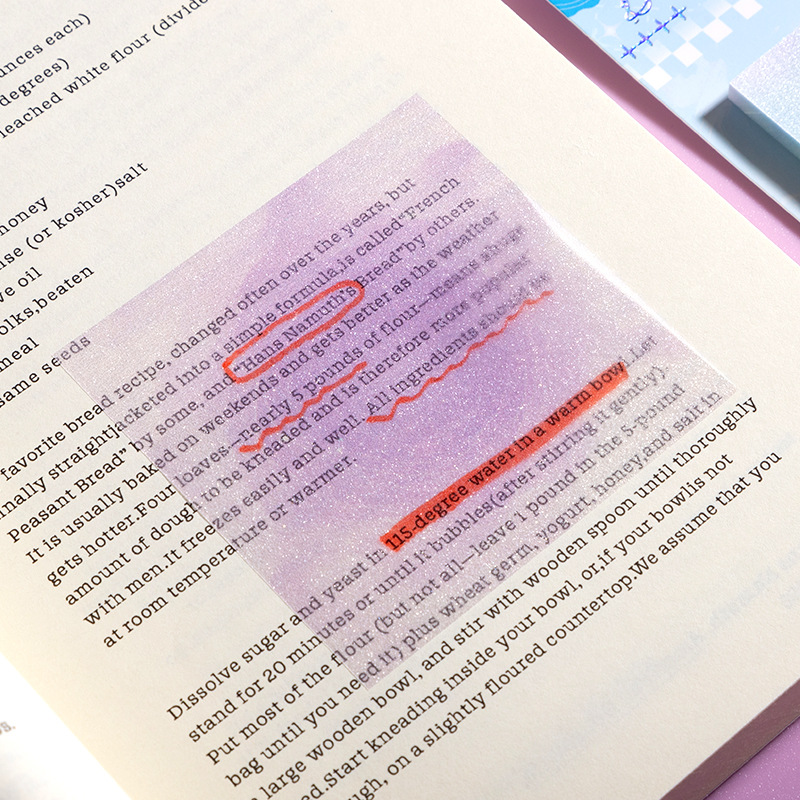 unces each)
degrees)
leached white flour (divide
honey
(or kosher)salt
oil
olks,beaten
meal
same seeds
favorite bread recipe, changed often over the years, but
straightjacketed into a simple formula,is called"French
Peasant Bread" by some, and "Hans Namuth's Bread"by others.
It is usually baked on weekends and gets better as the weather
gets hotter.Four loaves—nearly 5 pounds of flour—means
amount of dough to be kneaded and is therefore more popular
with men.It freezes easily and well. All ingredients should be
at room temperature or warmer.
Dissolve sugar and yeast in 115-degree water in a warm bowl.Let
stand for 20 minutes or until it bubbles(after stirring it gently).
Put most of the flour (but not all—leave 1 pound in the 5-pound
bag until you need it) plus wheat germ, yogurt, honey,and salt in
large wooden bowl, and stir with wooden spoon until thoroughly
ed.Start kneading inside your bowl, or,if your bowlis not
on a slightly floured countertop.We assume that you